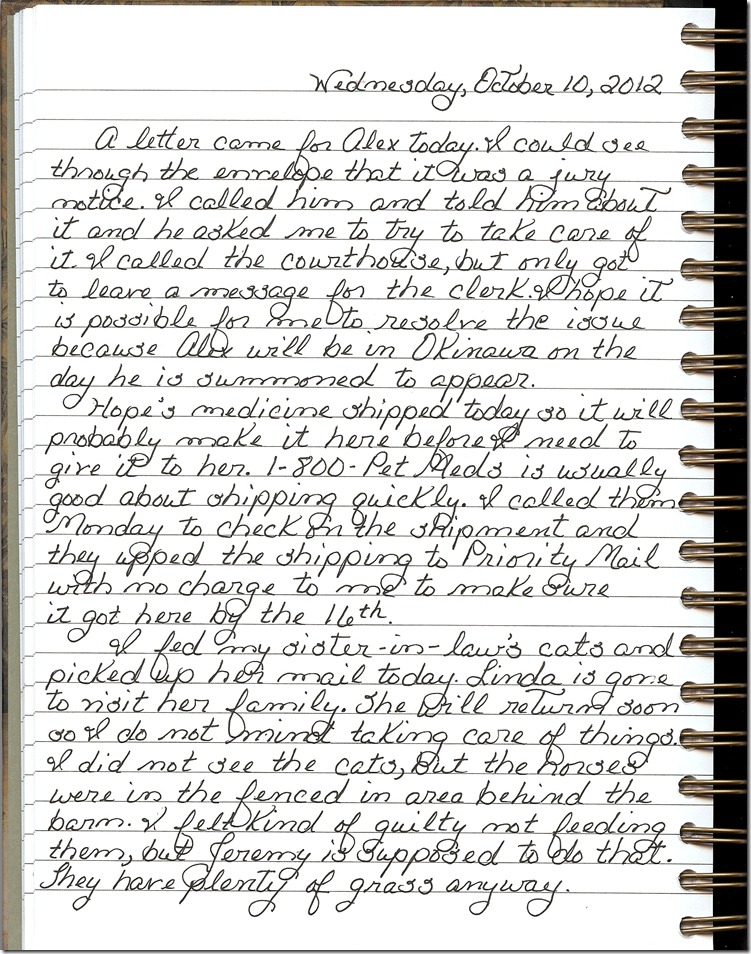 Wednesday, October 10, 2012
A letter came for Alex today. I could see
through the envelope that it was a jury
notice. I called him and told him about
it and he asked me to try to take care of
it. I called the courthouse, but only got
to leave a message for the clerk. I hope it
is possible for me to resolve the issue
because Alex will be in Okinawa on the
day he is summoned to appear.
Hope's medicine shipped today so it will
probably make it here before I need to
give it to her. 1-800-Pet Meds is usually
good about shipping quickly. I called them
Monday to check on the shipment and
they upped the shipping to Priority Mail
with no charge to me to make sure
it got here by the 16th.
I fed my sister-in-law's cats and
picked up her mail today. Linda is gone
to visit her family. She will return soon
so I do not mind taking care of things.
I did not see the cats, but the horses
were in the fenced in area behind the
barn. I felt kind of guilty not feeding
them, but Jeremy is supposed to do that.
They have plenty of grass anyway.